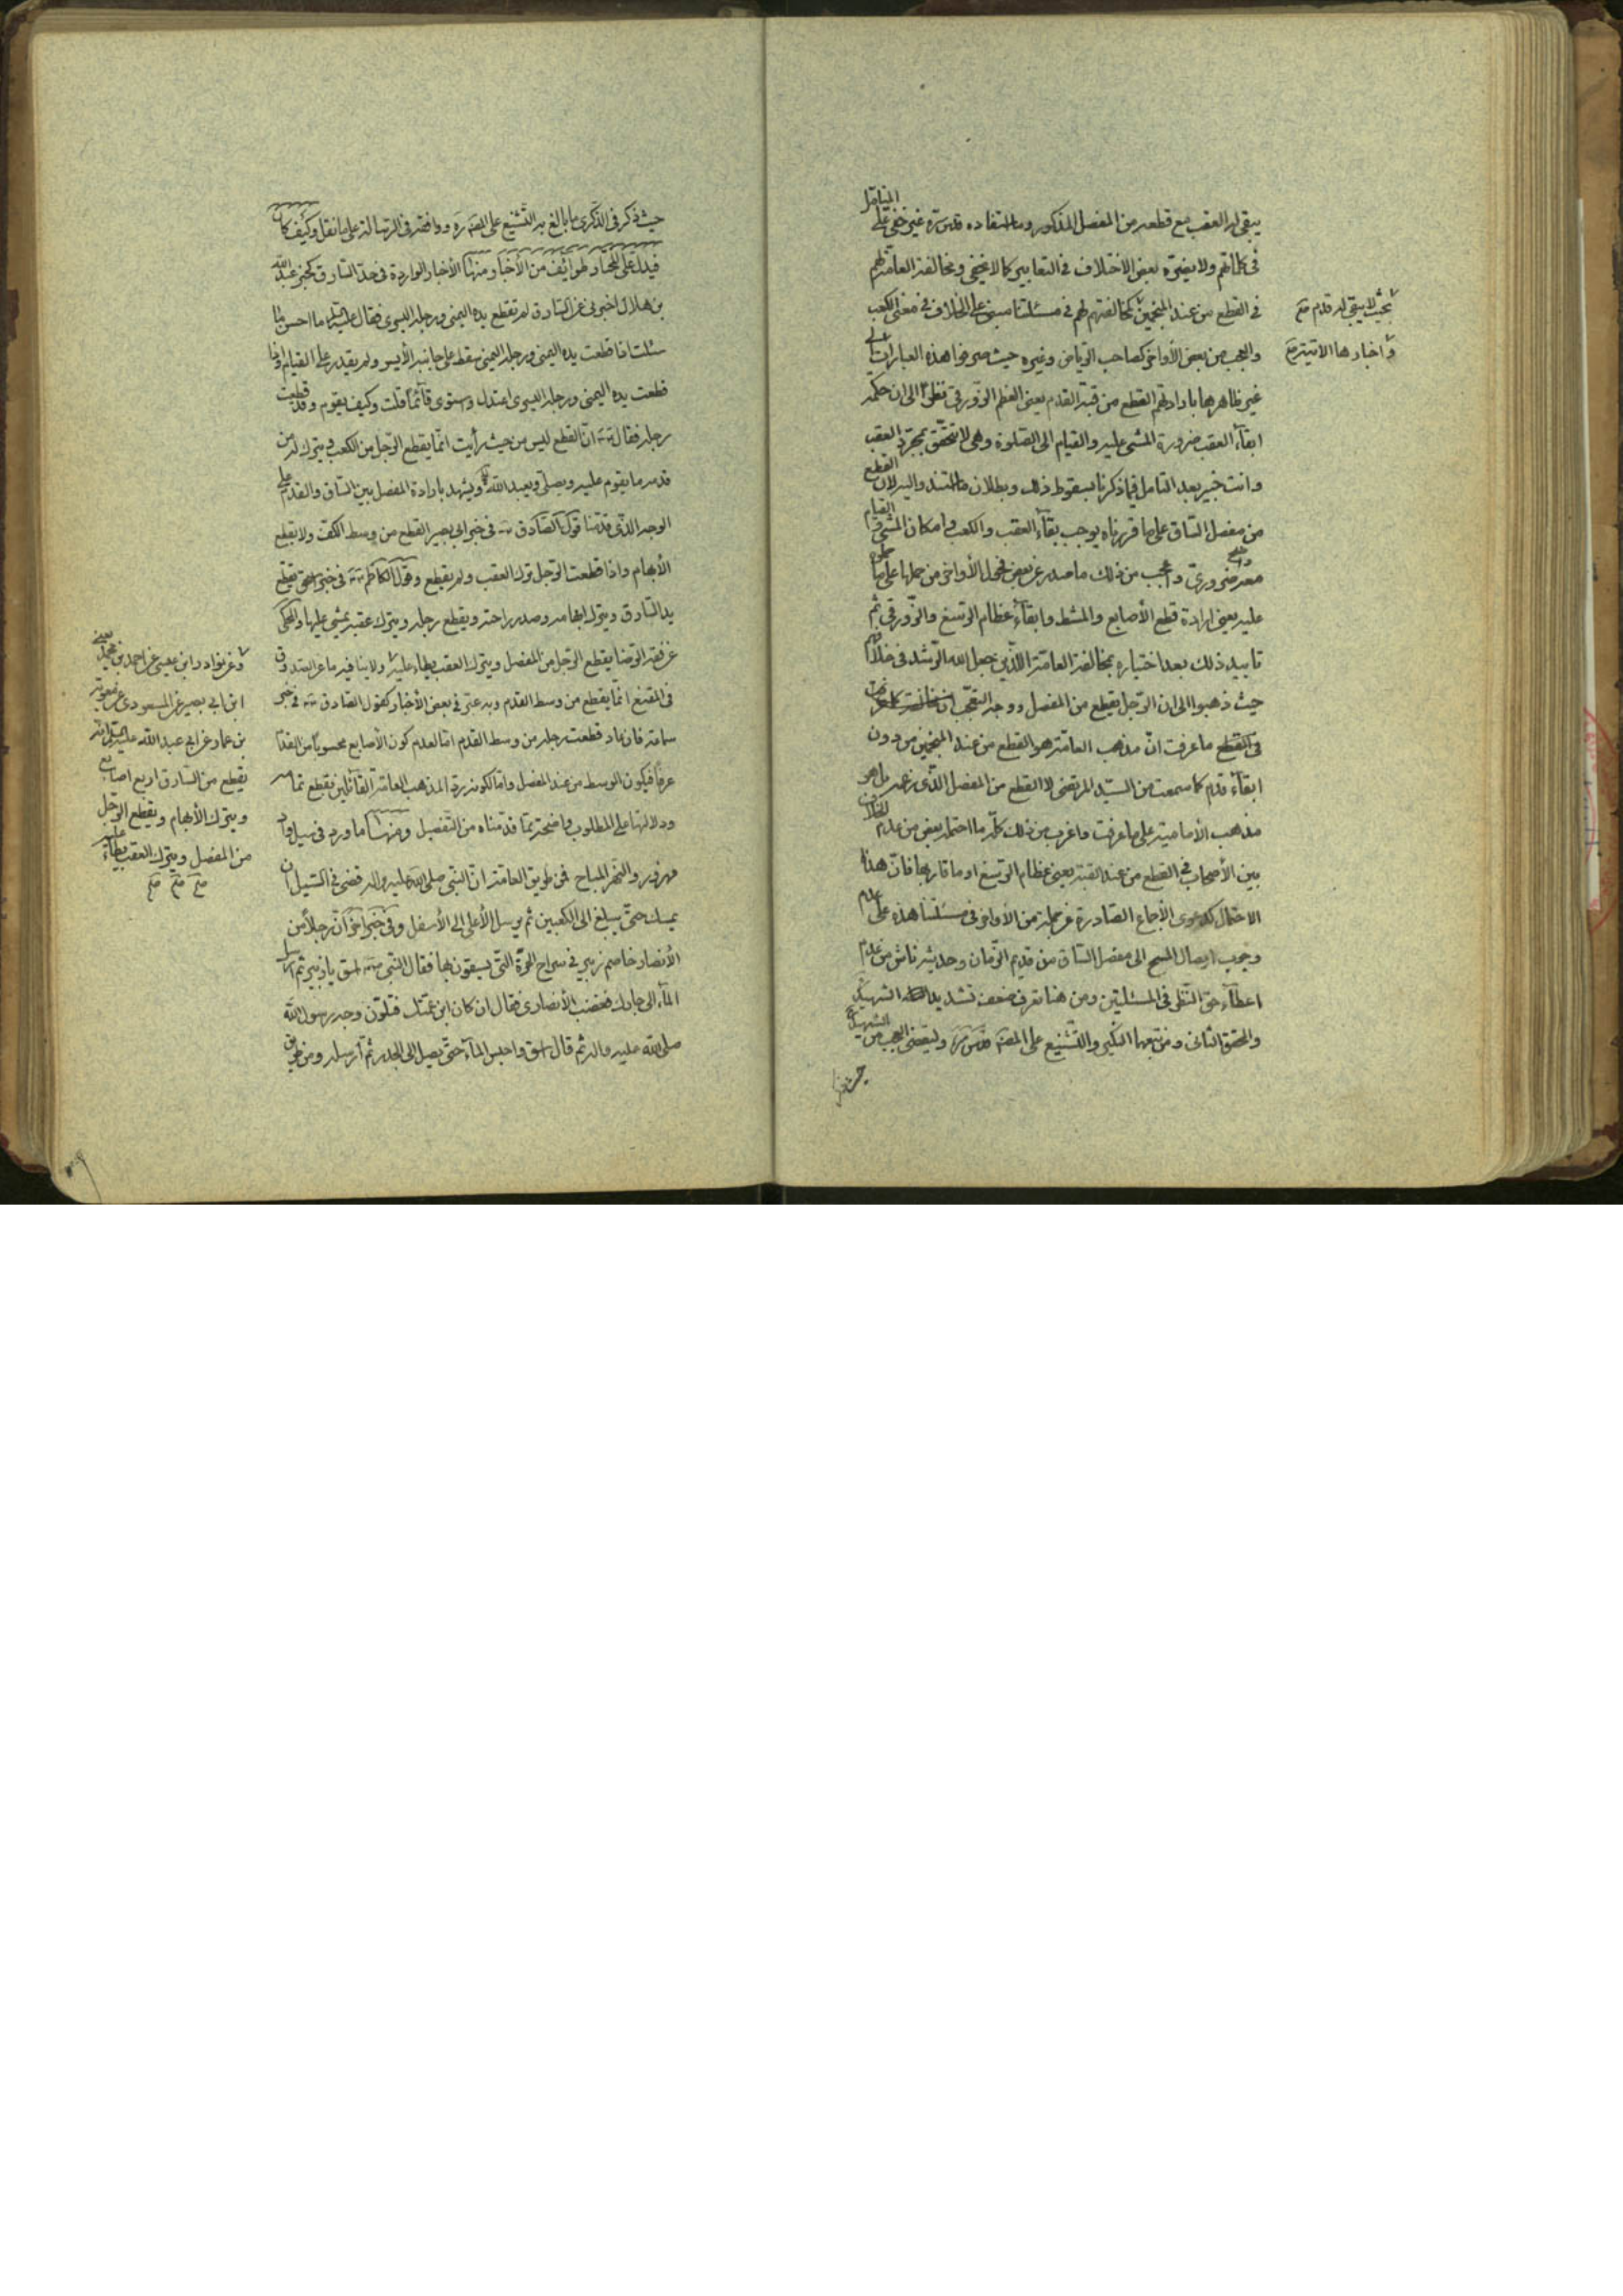 يبقى له العقب مع قطعه من المفصل المذكور وما استفاده قدس سره غير خفي على المتأمل
في كلماتهم ولا يضره بعض الاختلاف في التعابير كما لا يخفى ومخالفة العامة لهم
في القطع من عند المنجمين كمخالفتهم لهم في مسئلتنا مبني على الخلاف في معنى الكعب
بحيث لا يبقى له قدم صح
والعجب من بعض الأواخر كصاحب الرياض وغيره حيث صرفوا هذه العبارات على
وأخبارها الآتية صح
غير ظاهرها بارادتهم القطع من قبة القدم يعني العظم الزورقي نظرا الى ان حكمة
ابقاء العقب ضرورة المشي عليه والقيام الى الصلوة وهي لا تتحقق بمجرد العقب
وانت خبير بعد التامل فيما ذكرنا بسقوط ذلك وبطلان ما استند اليه لان القطع
من مفصل الساق على ما قررناه يوجب بقاء العقب والكعب وامكان المشي و القيام
معه ضروري واعجب من ذلك ما صدر عن بعض فحول الأواخر من حملها على ما حملوه
عليه يعني ارادة قطع الأصابع والمشط وابقاء عظام الرسغ والزورقي ثم
تاييد ذلك بعد اختياره بمخالفة العامة الذين جعل الله الرشد في خلافهم
حيث ذهبوا الى ان الرجل يقطع من المفصل ووجه التعجب
في القطع ما عرفت ان مذهب العامة هو القطع من عند المنجمين من دون
ابقاء قدم كما سمعت من السيد المرتضى لا القطع من المفصل الذي زعمه بل هو
مذهب الأمامية على ما عرفت واغرب من ذلك كله ما احتمله بعض من عدم الخلاف
بين الأصحاب في القطع من عند القبة يعني عظام الرسغ او ما قاربها فان هذا
الاحتمال كدعوى الأجماع الصادرة عن جملة من الأواخر في مسئلتنا هذه على عدم
وجوب ايصال المسح الى مفصل الساق من قديم الزمان وحديثه ناش من عدم
اعطاء حق النظر في المسئلتين ومن هنا تعرف ضعف تشديد الشهيد
والمحقق الثاني ومن تبعهما النكير والتشنيع على المصنف قدس سره وليقضى العجب من الشهيد
حيث ذكر في الذكرى ما بالغ به التشنيع على المصنف ره ووافقه في الرسالة على ما نقل وكيف كان
فيدل على المختار طوائف من الأخبار ومنها الأخبار الواردة في حد السارق كخبر عبد الله
بن هلال اخبرني عن السارق لم تقطع يده اليمنى ورجله اليسرى فقال عليه السلام ما احسن ما
سئلت اذا قطعت يده اليمنى ورجله اليمنى سقط على جانبه الأيسر ولم يقدر على القيام واذا
قطعت يده اليمنى ورجله اليسرى اعتدل واستوى قائما قلت وكيف يقوم وقد قطعت
رجله فقال ان القطع ليس من حيث رأيت انما يقطع الرجل من الكعب ويترك له من
قدمه ما يقوم عليه ويصلي ويعبد الله ويشهد بارادة المفصل بين الساق والقدم على
الوجه الذي قدمنا قول الصادق في خبر ابي بصير القطع من وسط الكف ولا يقطع
الأبهام واذا قطعت الرجل ترك العقب ولم يقطع وقول الكاظم في خبر اسحق يقطع
يد السارق ويترك ابهامه وصدر راحته ويقطع رجله ويترك عقبه يمشي عليها والمحكي
عن فقه الرضا يقطع الرجل من المفصل ويترك العقب يطأ عليه ولا ينافيه ما عن الصدوق
في المقنع انما يقطع من وسط القدم وبه عبر في بعض الأخبار كقول الصادق في خبر
سماعة فان عاد قطعت رجله من وسط القدم اما لعدم كون الأصابع محسوبا من القدم
عرفا فيكون الوسط من عند المفصل واما لكونه ردا لمذهب العامة القائلين بقطع تمامه
ودلالتها على المطلوب واضحة بما قدمناه من التفصيل ومنها ما ورد في سيل وادي
مهزور والنهر المباح فمن طريق العامة ان النبي صلى الله عليه واله قضى في السيل ان
يمسك حتى يبلغ الى الكعبين ثم يرسل الأعلى الى الأسفل وفي خبر اخر ان رجلا من
الأنصار خاصم زبير في شراج الحرة التي يسقون بها فقال النبي اسق يا زبير ثم ارسل
الماء الى جارك فغضب الأنصاري فقال ان كان ابن عمتك فتلون وجه رسول الله
صلى الله عليه واله ثم قال اسق واحبس الماء حتى يصل الى الجدر ثم ارسله ومن طريق
وعن نوادر ابن عيسى عن احمد بن محمد يعني
ابن ابي بصير عن المسعودي عن معوية
بن عمار عن ابي عبد الله عليه السلام
يقطع من السارق اربع اصابع
ويترك الأبهام ويقطع الرجل
من المفصل ويترك العقب يطأ عليه
صح صح صح